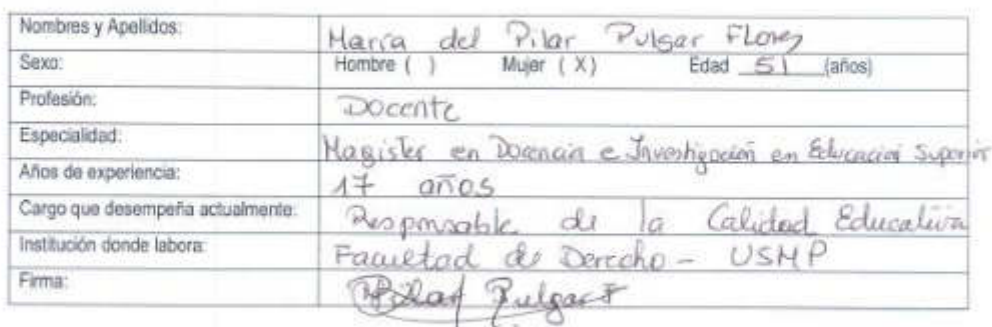 Nombres y Apellidos: María del Pilar Pulgar Flores
Sexo: Hombre ( ) Mujer ( X ) Edad 51 (años)
Profesión: Docente
Especialidad: Magister en Docencia e Investigación en Educación Superior
Años de experiencia: 17 años
Cargo que desempeña actualmente: Responsable de la Calidad Educativa
Institución donde labora: Facultad de Derecho - USMP
Firma: Pilar Pulgar F